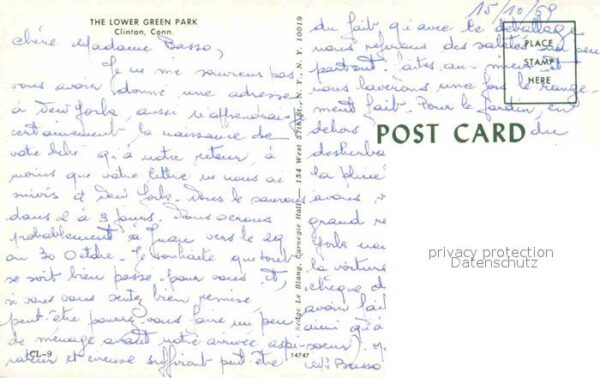 THE LOWER GREEN PARK
Clinton, Conn.
15/10/69
Chère Madame Basso,
Je ne me souviens pas
vous avoir donné une adresse
à New York, aussi n'apprendrai-je
certainement la naissance de
votre bébé qu'à notre retour, à
moins que votre lettre ne nous ai
suivis à New York. Nous le saurons
dans 2 à 3 jours. Nous serons
probablement à vers le 29
ou 30 Octobre. Je souhaite que tout
se soit bien passé pour vous et,
si vous vous sentez bien remise
peut-être pourrez-vous faire un peu
de ménage avant notre arrivée aspi-
rateur et cireuse suffiront peut-être
CL-9
Nedge Le Blang, Carnegie Hall — 154 West 57th St., N. Y., N. Y. 10019
14747
du fait qu'avec le déballage
nous referons des saletés un peu
partout. Faites au mieux et
nous laverons une fois le range-
ment fait. Pour le jardin, en
dehors du
PLACE
STAMP
HERE
POST CARD
désherba
la
avons
grand
York
la voiture
chèque
avoir fait
ainsi qu'à
Basso
privacy protection
Datenschutz